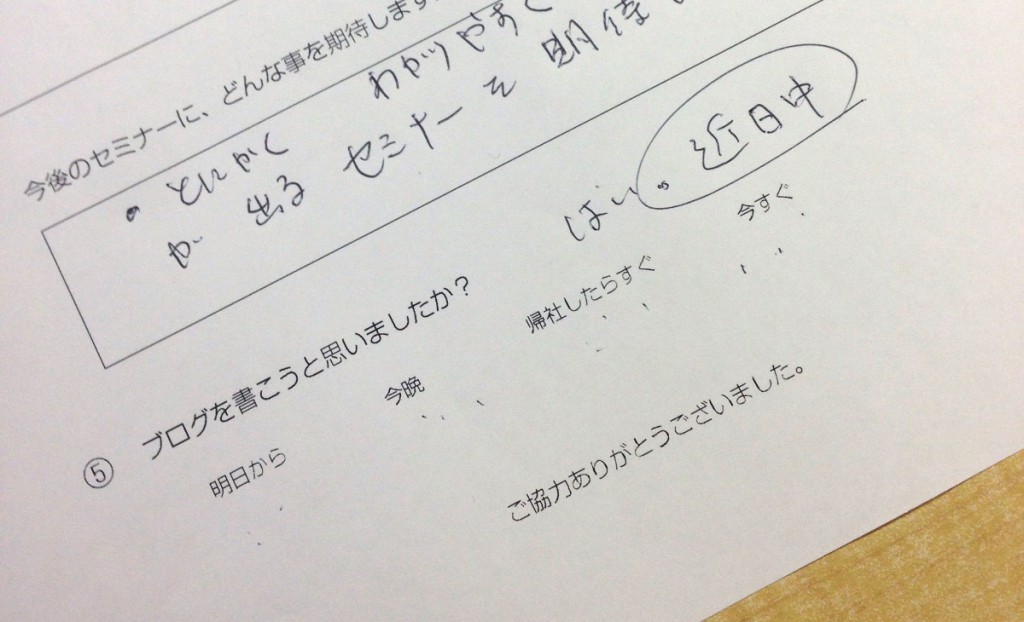 今後のセミナーに、どんな事を期待します
・とにかく わかりやすく
が 出る セミナーを 期待
⑤ ブログを書こうと思いましたか？
はい。近日中
明日から 今晩 帰社したらすぐ 今すぐ
ご協力ありがとうございました。